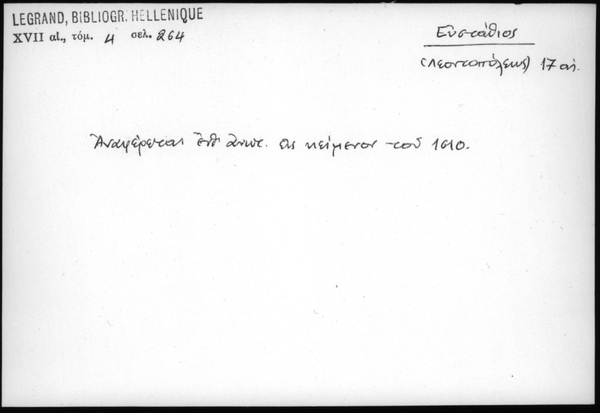 LEGRAND, BIBLIOGR. HELLENIQUE
XVII αἰ., τόμ. 4 σελ. 264
Εὐστάθιος
(Λεοντοπόλεως) 17 αἰ.
Ἀναφέρεται ἔνθ' ἀνωτ. εἰς κείμενον τοῦ 1610.